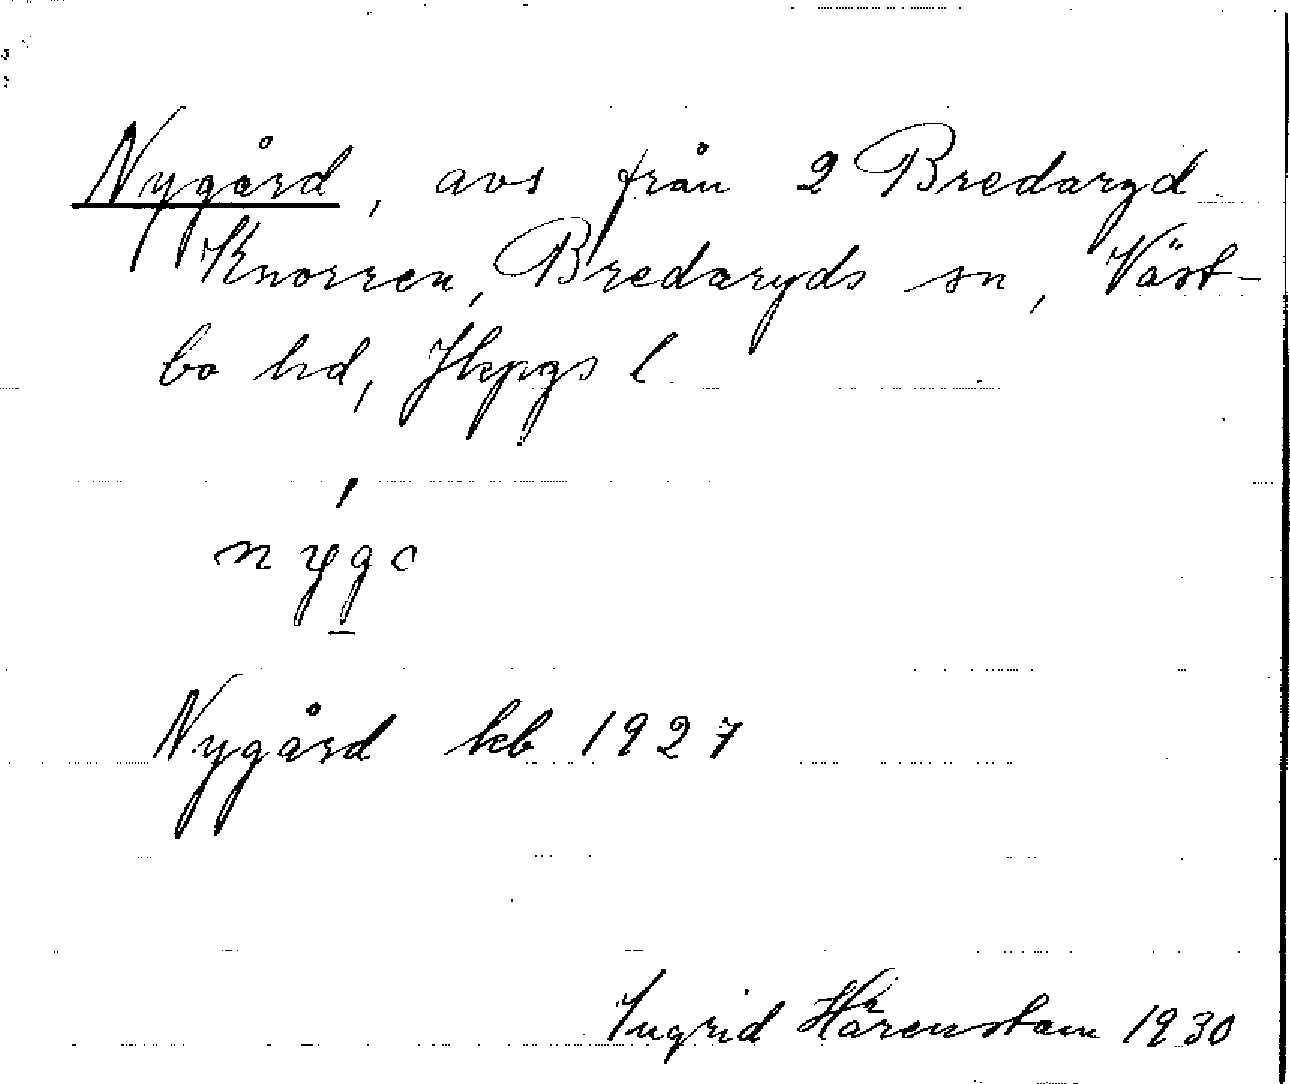 Nygård, avs från 2 Bredaryd
Knorren, Bredaryds sn, Väst-
bo hd, Jkpgs l
Nygård kb 1927
Ingrid Härenstam 1930